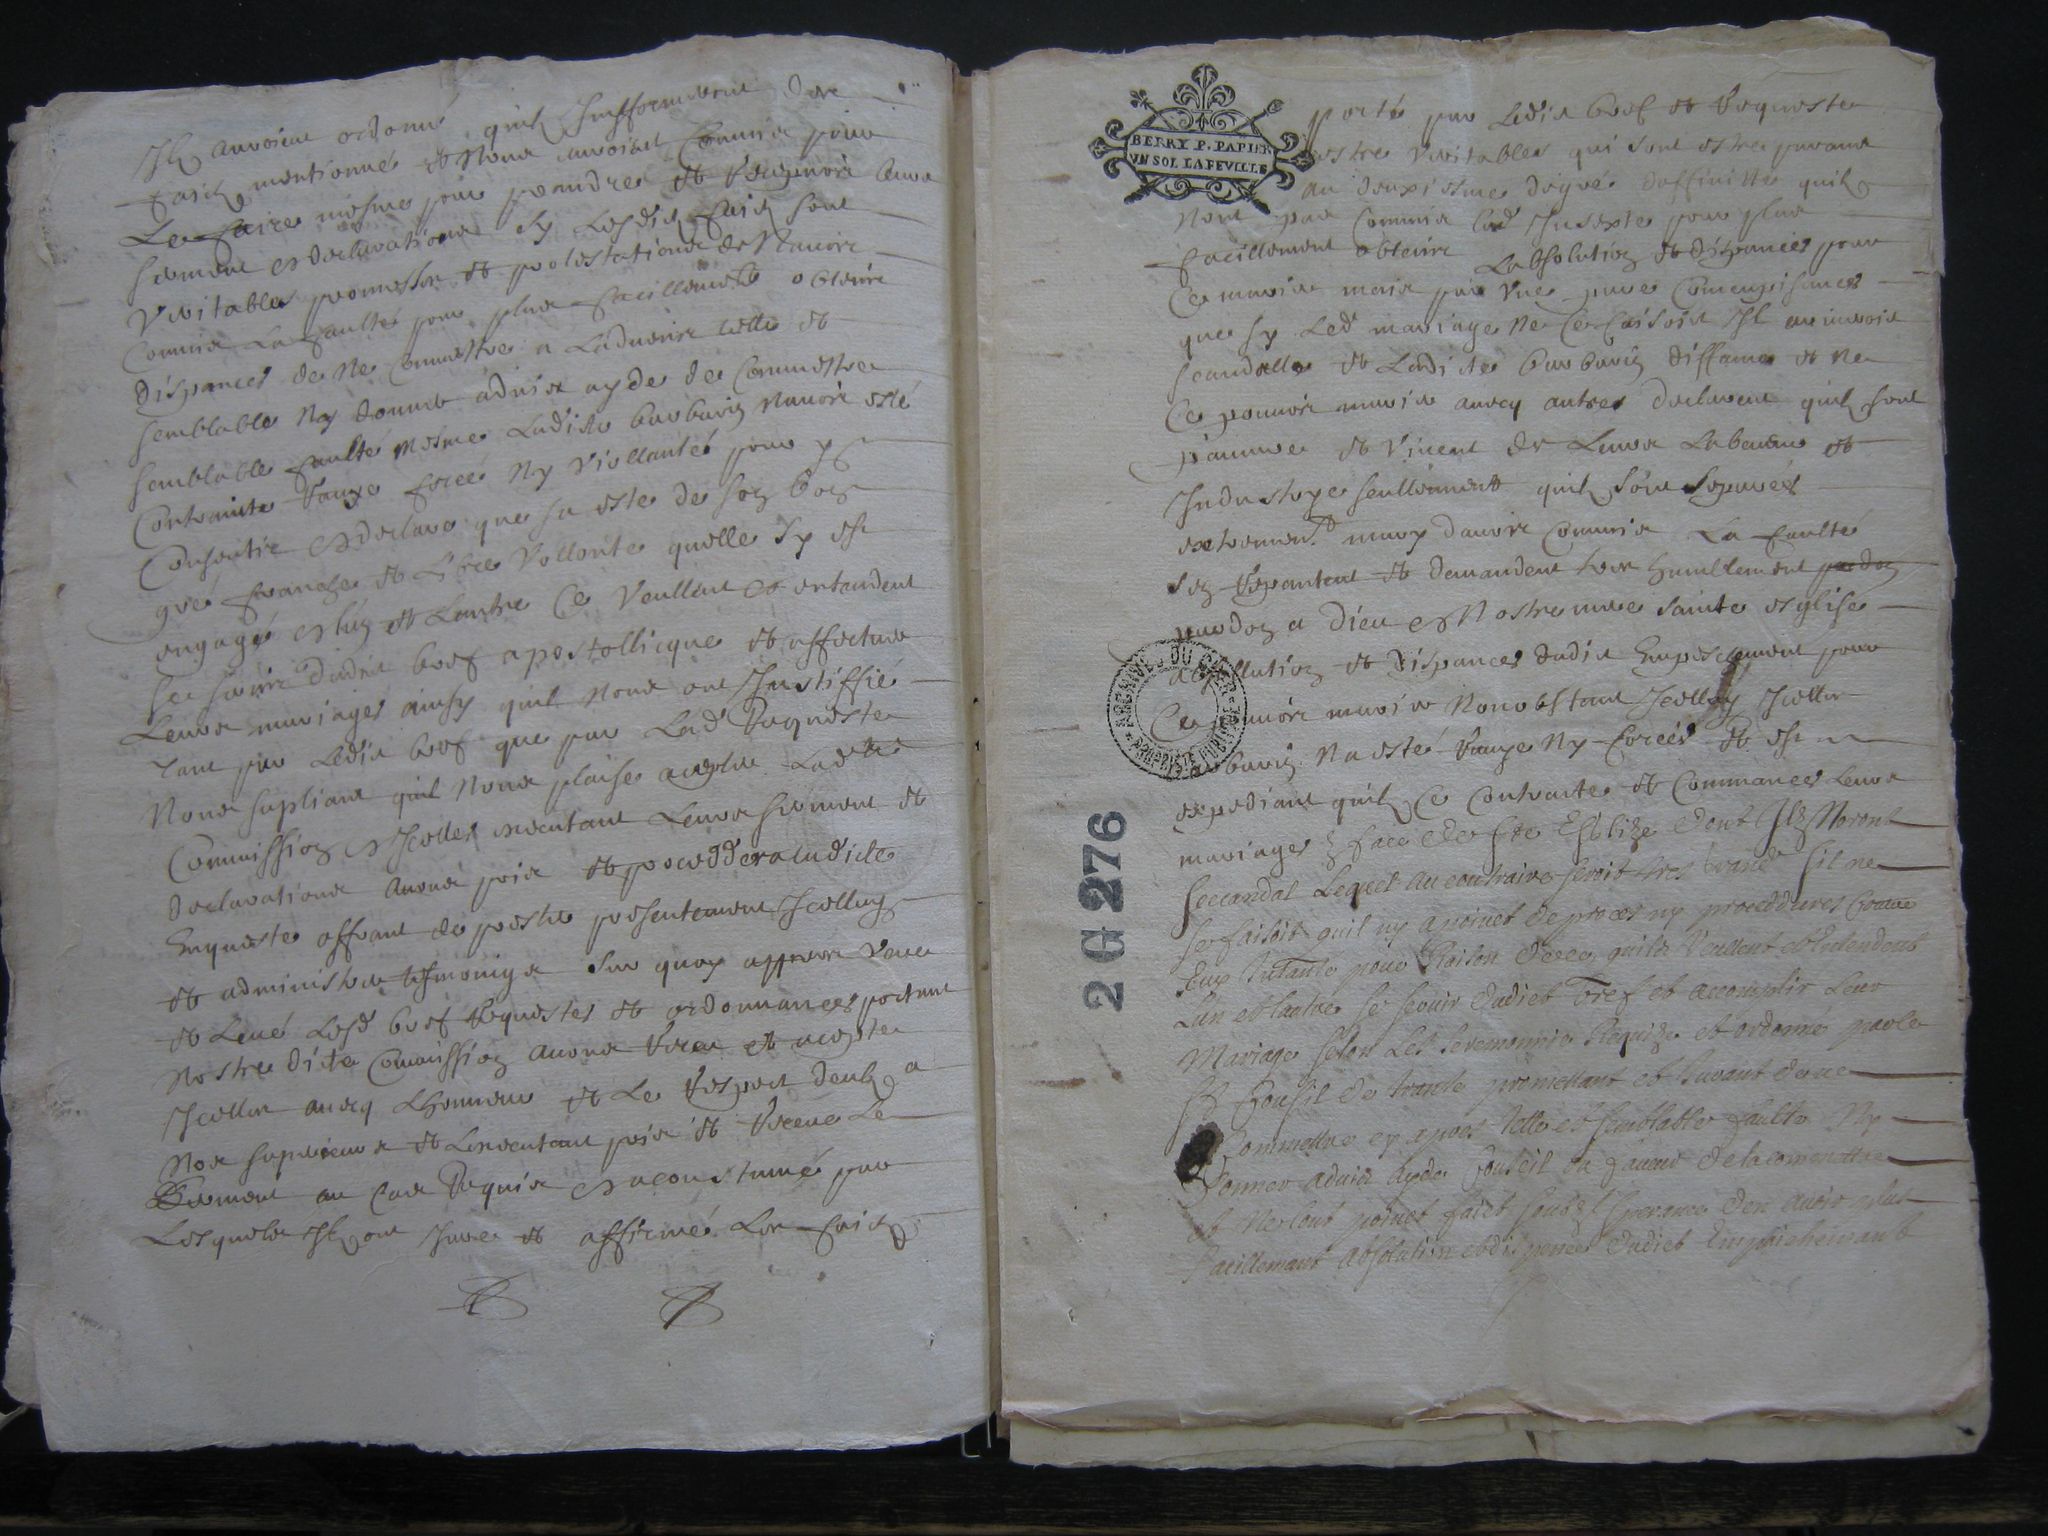 Ilz auroient ordonné quilz Informeroient des
faictz mentionnés et Nous auroient Commis pour
Le faire mesme pour prandre et recepvoir leurs
serment et declarations sy Lesdits faictz sont
veritables promesse et protestations de Navoir
Commis La faulte pour plus facillement obtenir
dispances de Ne Commettre a Ladvenir telle et
semblable Ny donner advis ayde de Commettre
semblable faulte mesme Ladite barbarin Navoir esté
Contrainte ravye forcée Ny viollantée pour y
Consentir et declare que sa esté de son bon
gré franche et libre Vollonté quelle sy est
engagé et lun et Lautre Ce Veullent et entendent
se servir dudit bref apostollicque et effectuer
Leurs mariages ainsy quil Nous ont Justiffié
tant par Ledit bref que par Lad Requeste
Nous supliant quil Nous plaise accepter Ladte
Commission et Icelle executant Leurs serment et
declarations avons pris et procedder a Ladicte
Enqueste offrant de prester presentement Icelluy
et administrer tesmoings sur quoy appres veu
et Leue Lesd bref requestes et ordonnances portant
Nostre dicte Commission avons receu et accepté
Icelle avecq Lhonneur et Le respect deub a
Nos superieurs et Lexecutant pris et receu Le
Serment au Cas requis et acoustumé par
Lesquels Ilz ont Jure et affirmé Les faictz
BERRY P. PAPIER
VN SOL LA FEVILLE
porté par Ledit bref et requeste
estre veritables qui sont estre parans
au deuxiesme degré daffinitté quilz
Nont pas Commis Lad Inceste pour plus
facillement obtenir Labsolution et dispances pour
Ce marier mais par une pure
que sy Led mariage Ne Ce faisoit Il en auroit
scandalle et Ladite barbarin diffamee et Ne
Ce pouvoir marier avecq autres declarent quilz sont
pauvres et vivent de Leurs Labeurs et
Industrye seullement quilz sont separés
extrement marry davoir Commis La faulte
sen repantent et demandent tres humblement pardon
pardon a dieu et Nostre mere sainte esglise
absollution et dispances dudit Empeschement pour
Ce pouvoir marier Nonobstant Icelluy Icelle
barbarin Na esté ravye Ny forcée et est
expediant quilz Ce Contracte et Commances Leurs
mariages En face de ste Eglize dont Ilz Noront
seccandal Lequel au contraire seroit tres grand sil ne
se faisoit quil ny a point de proces ny proceddures Contre
Eux Intanté pour Raison de ce quilz Veullent et Entendent
Lun et lautre se servir dudict bref et accomplir Leur
Mariage selon Les seremonnie Requize et ordonné par le
St Consil de trante promettant et Jurant de ne
Commettre cy apres telle et semblable faulte Ny
Donner advis ayde Conseil ou faveur de la comemettre
et Nel'ont point faict soubz Esperance d'en avoir plus
facillemant absolution et dispence dudict Empeichemant
ARCHIVES DU CHER
PROPRIÉTÉ PUBLIQUE
2 G 276